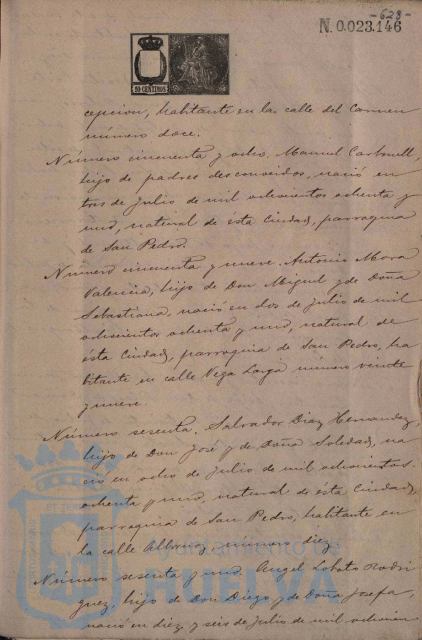 -628-
N. 0.023.146
50 CENTIMOS
cepcion, habitante en la calle del Carmen
número doce.
Número cincuenta y ocho. Manuel Carbonell,
hijo de padres desconocidos, nació en
tres de julio de mil ochocientos ochenta y
uno, natural de ésta Ciudad, parroquia
de San Pedro.
Número cincuenta y nueve. Antonio Mora
Valencia, hijo de Don Miguel y de Doña
Sebastiana, nació en dos de julio de mil
ochocientos ochenta y uno, natural de
ésta Ciudad, parroquia de San Pedro, ha
bitante en calle Vega Larga número veinte
y nueve.
Número sesenta. Salvador Diaz Hernandez,
hijo de Don José y de Doña Soledad, na
ció en ocho de julio de mil ochocientos
ochenta y uno, natural de ésta Ciudad,
parroquia de San Pedro, habitante en
la calle número diez.
Número sesenta y uno. Angel Lobato Rodri
guez, hijo de Don Diego y de Doña Josefa,
nació en diez y seis de julio de mil ochocien
Ayuntamiento de
HUELVA